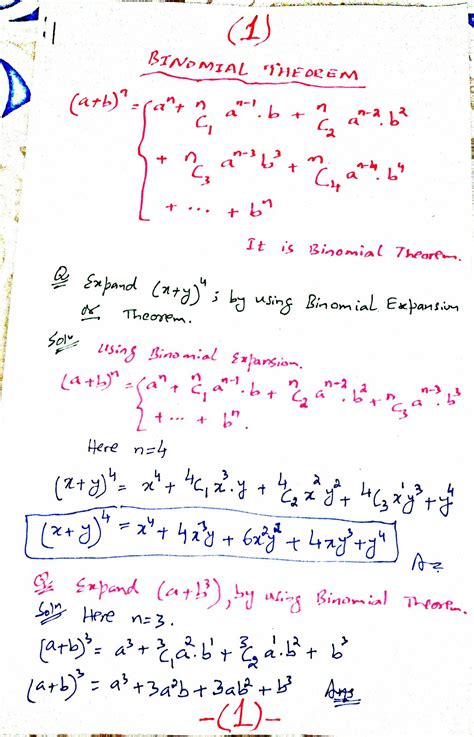 (1)
BINOMIAL THEOREM
(a+b)^n = { a^n + ^nC_1 a^{n-1}.b + ^nC_2 a^{n-2}.b^2
+ ^nC_3 a^{n-3} b^3 + ^nC_4 a^{n-4}.b^4
+ ... + b^n
It is Binomial Theorem.
Q Expand (x+y)^4; by using Binomial Expansion
or Theorem.
Soln Using Binomial Expansion.
(a+b)^n = { a^n + ^nC_1 a^{n-1}.b + ^nC_2 a^{n-2}.b^2 + ^nC_3 a^{n-3}.b^3
+ ... + b^n.
Here n=4
(x+y)^4 = x^4 + ^4C_1 x^3.y + ^4C_2 x^2 y^2 + ^4C_3 x^1 y^3 + y^4
(x+y)^4 = x^4 + 4x^3y + 6x^2y^2 + 4xy^3 + y^4
Q Expand (a+b^3), by using Binomial Theorem.
Soln Here n=3.
(a+b)^3 = a^3 + ^3C_1 a^2.b^1 + ^3C_2 a^1.b^2 + b^3
(a+b)^3 = a^3 + 3a^2b + 3ab^2 + b^3 Ans
-(1)-